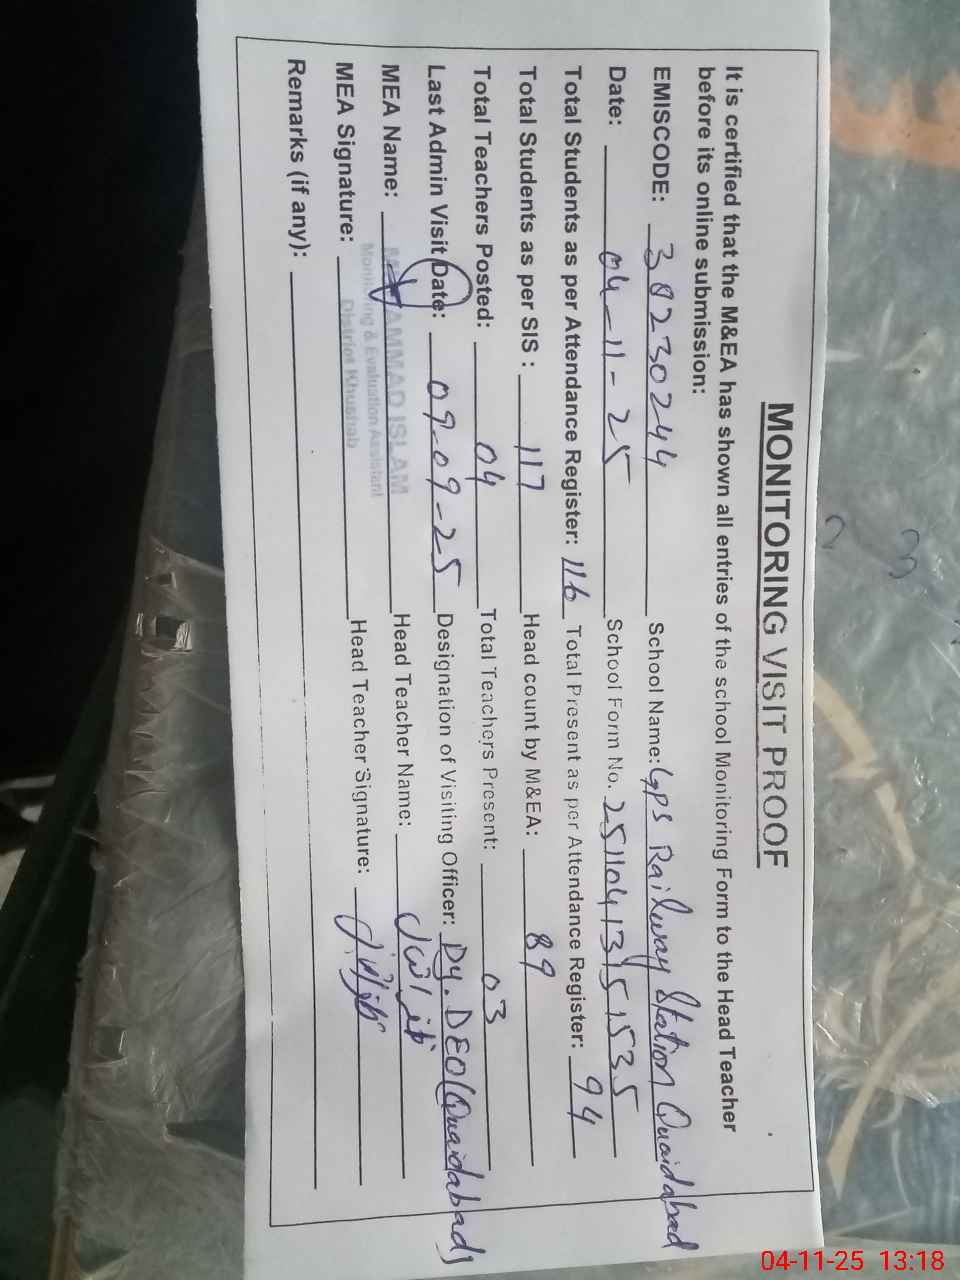 MONITORING VISIT PROOF
It is certified that the M&EA has shown all entries of the school Monitoring Form to the Head Teacher
before its online submission:
EMISCODE: 38230244 School Name: GPS Railway Station Quaidabad
Date: 04-11-25 School Form No. 25110413151535
Total Students as per Attendance Register: 116 Total Present as per Attendance Register: 94
Total Students as per SIS : 117 Head count by M&EA: 89
Total Teachers Posted: 04 Total Teachers Present: 03
Last Admin Visit Date: 09-09-25 Designation of Visiting Officer: Dy. DEO (Quaidabad)
MEA Name: MUHAMMAD ISLAM Head Teacher Name:
Monitoring & Evaluation Assistant
District Khushab
MEA Signature: Head Teacher Signature:
Remarks (if any):
04-11-25 13:18